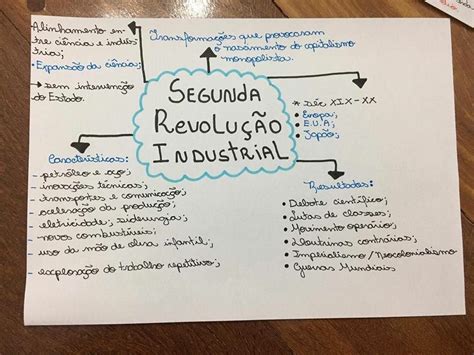 Alinhamento en-
tre ciência e indús-
tria;
• Expansão da ciência;
→ sem intervenção
do Estado.
Transformações que provocaram
o nascimento do capitalismo
monopolista.
SEGUNDA
REVOLUÇÃO
INDUSTRIAL
* séc XIX-XX
• Europa;
• E.U.A;
• Japão;
Características:
- petróleo e aço;
- inovações técnicas;
- transportes e comunicação;
- aceleração da produção;
- eletricidade; siderurgia;
- novos combustíveis;
- uso da mão de obra infantil;
- exploração do trabalho repetitivo;
Resultados:
• Debate científico;
• Lutas de classes;
• Movimento operário;
• Doutrinas contrárias;
• Imperialismo / Neocolonialismo
• Guerras Mundiais